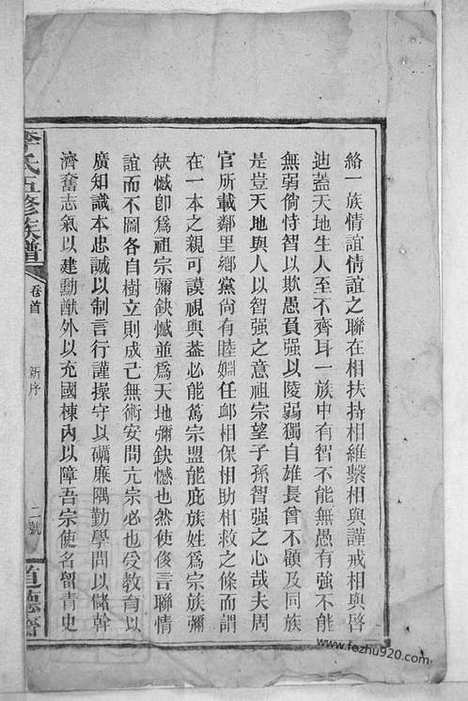 絡一族情誼情誼之聯在相扶持相維繫相與謹戒相與啓
迪蓋天地生人至不齊耳一族中有智不能無愚有強不能
無弱倘恃智以欺愚負强以陵弱獨自雄長曾不顧及同族
是豈天地與人以智强之意祖宗望子孫智强之心哉夫周
官所載鄰里鄉黨尚有睦婣任䘏相保相助相救之條而謂
在一本之親可謨視與蓋必能篤宗盟能庇族姓爲宗族彌
缺憾卽爲祖宗彌缺憾並爲天地彌缺憾也然使侈言聯情
誼而不圖各自樹立則成己無術安問亢宗必也受教育以
廣知識本忠誠以制言行謹操守以礪廉隅勤學問以儲幹
濟奮志氣以建勳猷外以充國棟內以障吾宗使名留青史
李氏五修族譜
卷首
新序
二號
道德堂
www.fezhu920.com